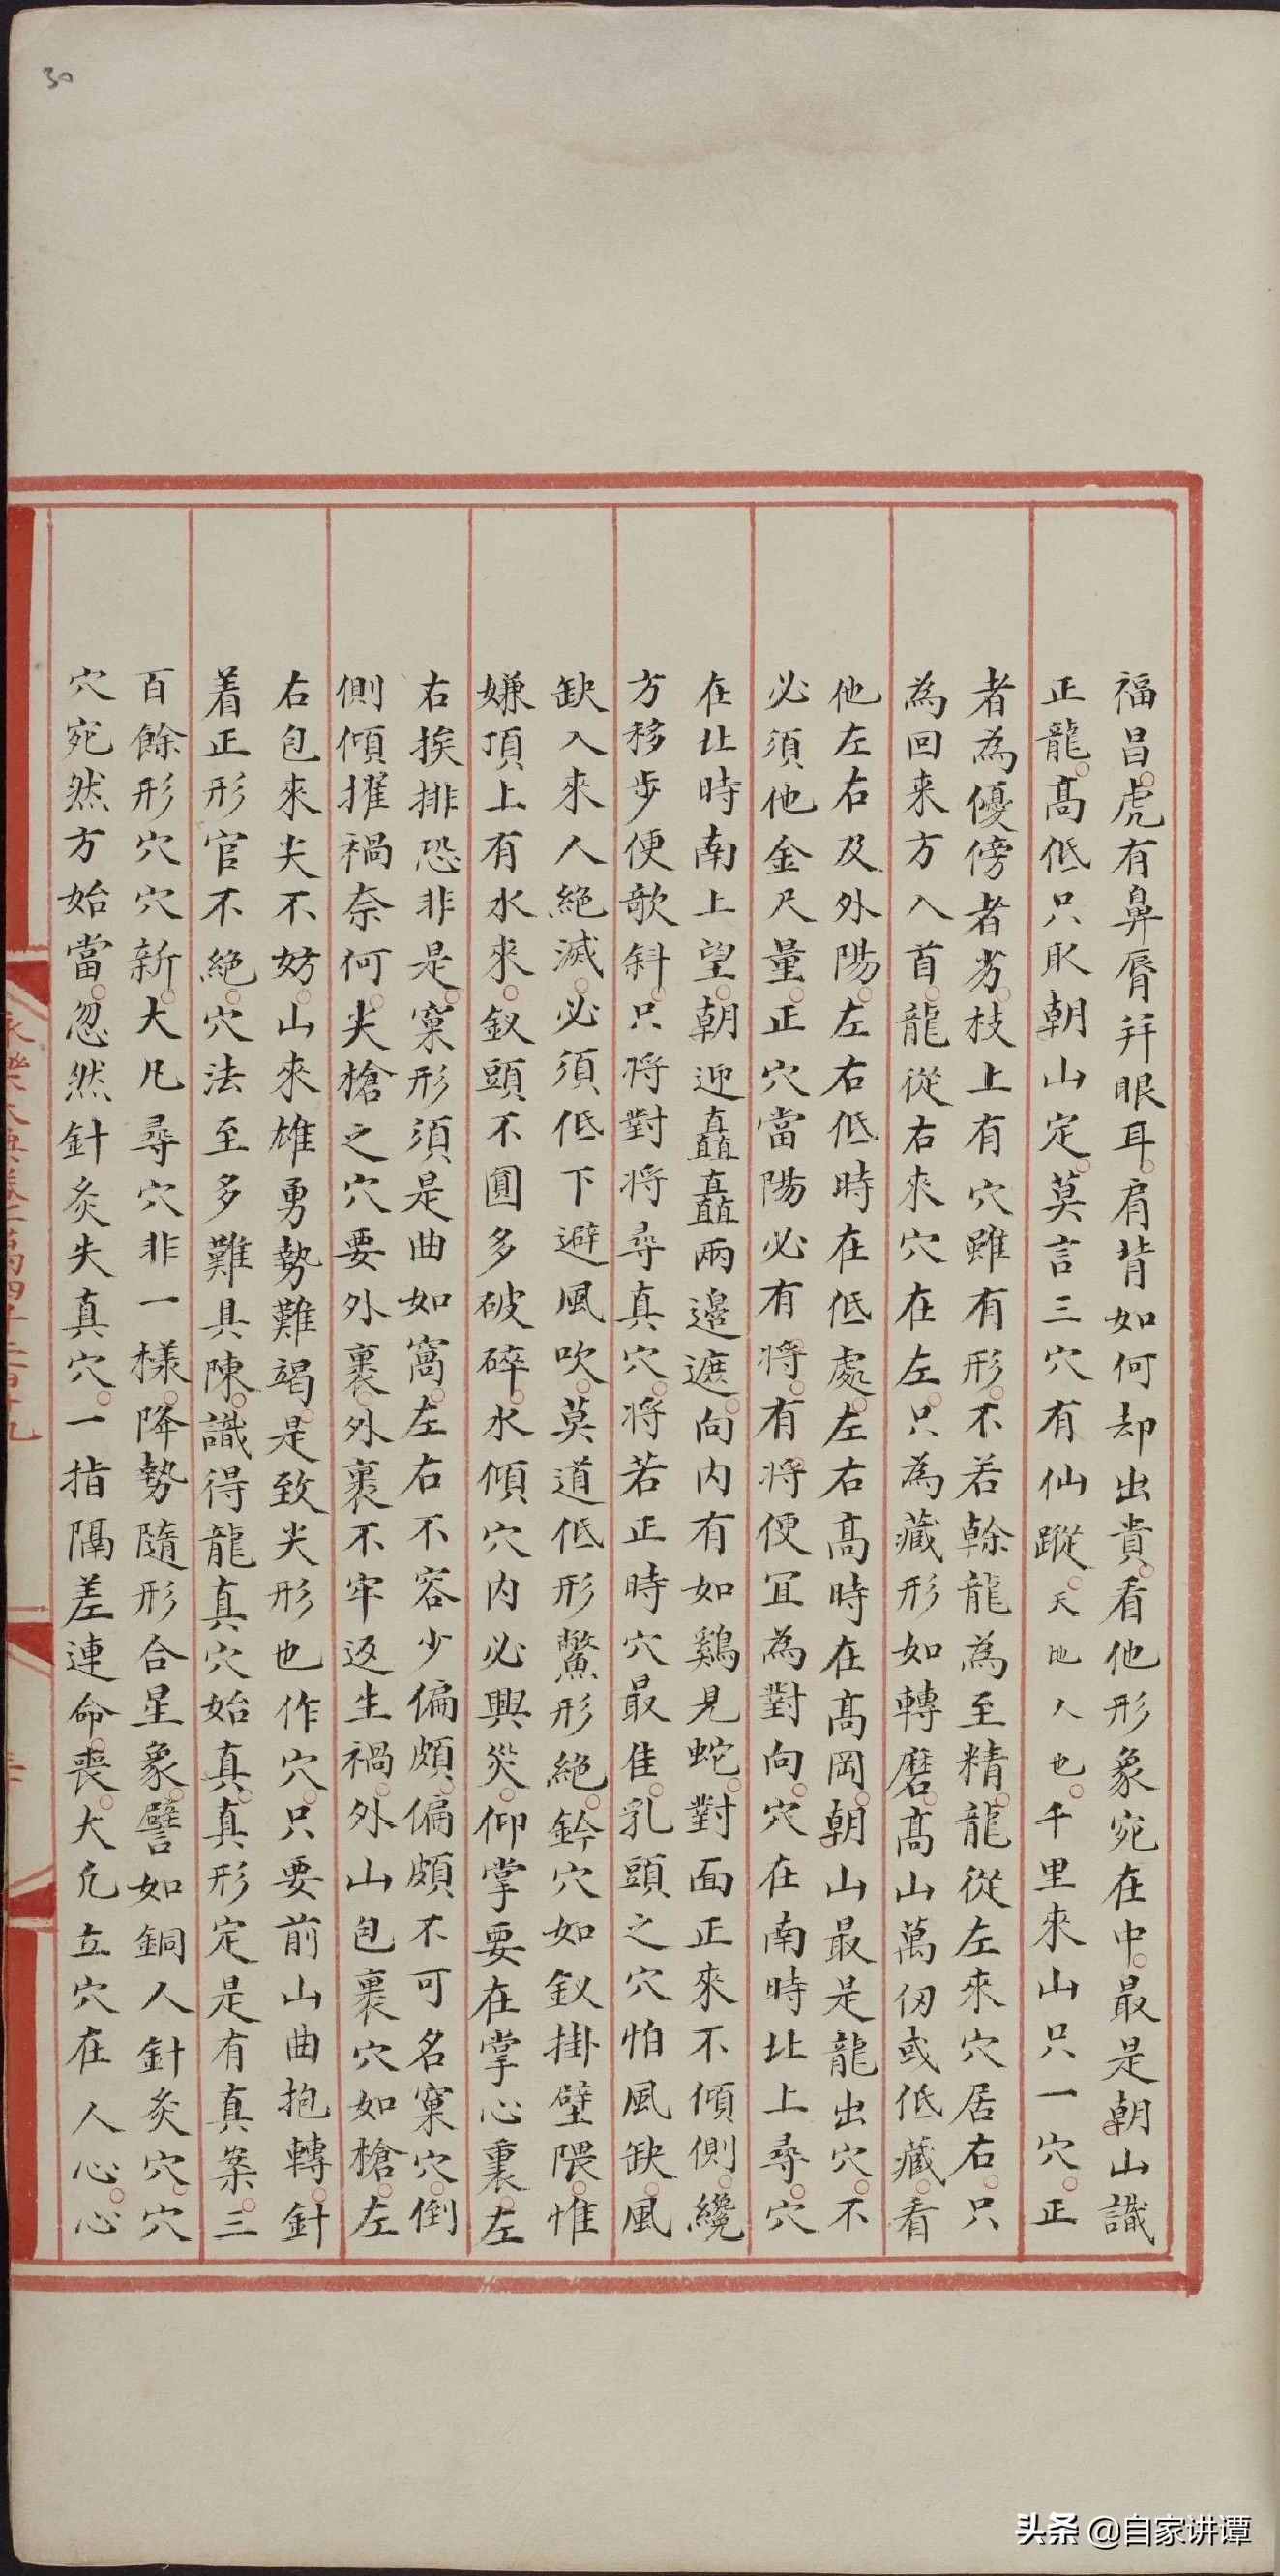 30
福昌虎有鼻脣幷眼耳肩背如何却出貴看他形象宛在中最是朝山識
正龍高低只取朝山定莫言三穴有仙蹤天地人也千里來山只一穴正
者為優傍者劣枝上有穴雖有形不若榦龍為至精龍從左來穴居右只
為回来方入首龍從右來穴在左只為藏形如轉磨高山萬仞或低藏看
他左右及外陽左右低時在低處左右高時在高岡朝山最是龍出穴不
必須他金尺量正穴當陽必有將有將便冝為對向穴在南時北上尋穴
在北時南上望朝迎矗矗兩邊遮向内有如鷄見蛇對面正來不傾側纔
方移步便欹斜只將對將尋真穴將若正時穴最佳乳頭之穴怕風缺風
缺入來人絕滅必須低下避風吹莫道低形鱉形絕鈐穴如釵掛壁隈惟
嫌頂上有水來釵頭不圓多破碎水傾穴内必興災仰掌要在掌心裏左
右挨排恐非是窠形須是曲如窩左右不容少偏頗偏頗不可名窠穴倒
側傾摧禍奈何尖槍之穴要外裹外裹不牢返生禍外山包裹穴如槍左
右包來尖不妨山來雄勇勢難竭是致尖形也作穴只要前山曲抱轉針
着正形官不絕穴法至多難具陳識得龍真穴始真真形定是有真案三
百餘形穴穴新大凡尋穴非一樣降勢隨形合星象譬如銅人針灸穴穴
穴宛然方始當忽然針灸失真穴一指隔差連命喪大凡立穴在人心心
头条 @自家讲谭